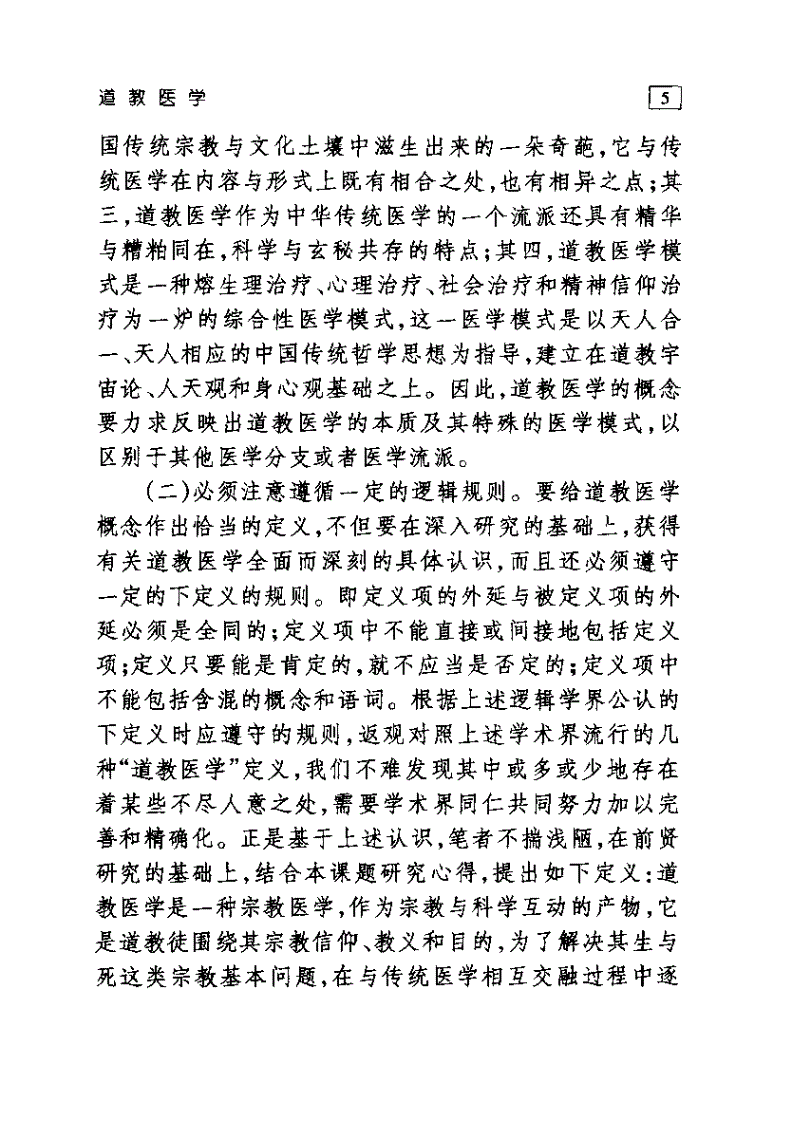 道教医学 5
国传统宗教与文化土壤中滋生出来的一朵奇葩,它与传
统医学在内容与形式上既有相合之处,也有相异之点;其
三,道教医学作为中华传统医学的一个流派还具有精华
与糟粕同在,科学与玄秘共存的特点;其四,道教医学模
式是一种熔生理治疗、心理治疗、社会治疗和精神信仰治
疗为一炉的综合性医学模式,这一医学模式是以天人合
一、天人相应的中国传统哲学思想为指导,建立在道教宇
宙论、人天观和身心观基础之上。因此,道教医学的概念
要力求反映出道教医学的本质及其特殊的医学模式,以
区别于其他医学分支或者医学流派。
(二)必须注意遵循一定的逻辑规则。要给道教医学
概念作出恰当的定义,不但要在深入研究的基础上,获得
有关道教医学全面而深刻的具体认识,而且还必须遵守
一定的下定义的规则。即定义项的外延与被定义项的外
延必须是全同的;定义项中不能直接或间接地包括定义
项;定义只要能是肯定的,就不应当是否定的;定义项中
不能包括含混的概念和语词。根据上述逻辑学界公认的
下定义时应遵守的规则,返观对照上述学术界流行的几
种“道教医学”定义,我们不难发现其中或多或少地存在
着某些不尽人意之处,需要学术界同仁共同努力加以完
善和精确化。正是基于上述认识,笔者不揣浅陋,在前贤
研究的基础上,结合本课题研究心得,提出如下定义:道
教医学是一种宗教医学,作为宗教与科学互动的产物,它
是道教徒围绕其宗教信仰、教义和目的,为了解决其生与
死这类宗教基本问题,在与传统医学相互交融过程中逐